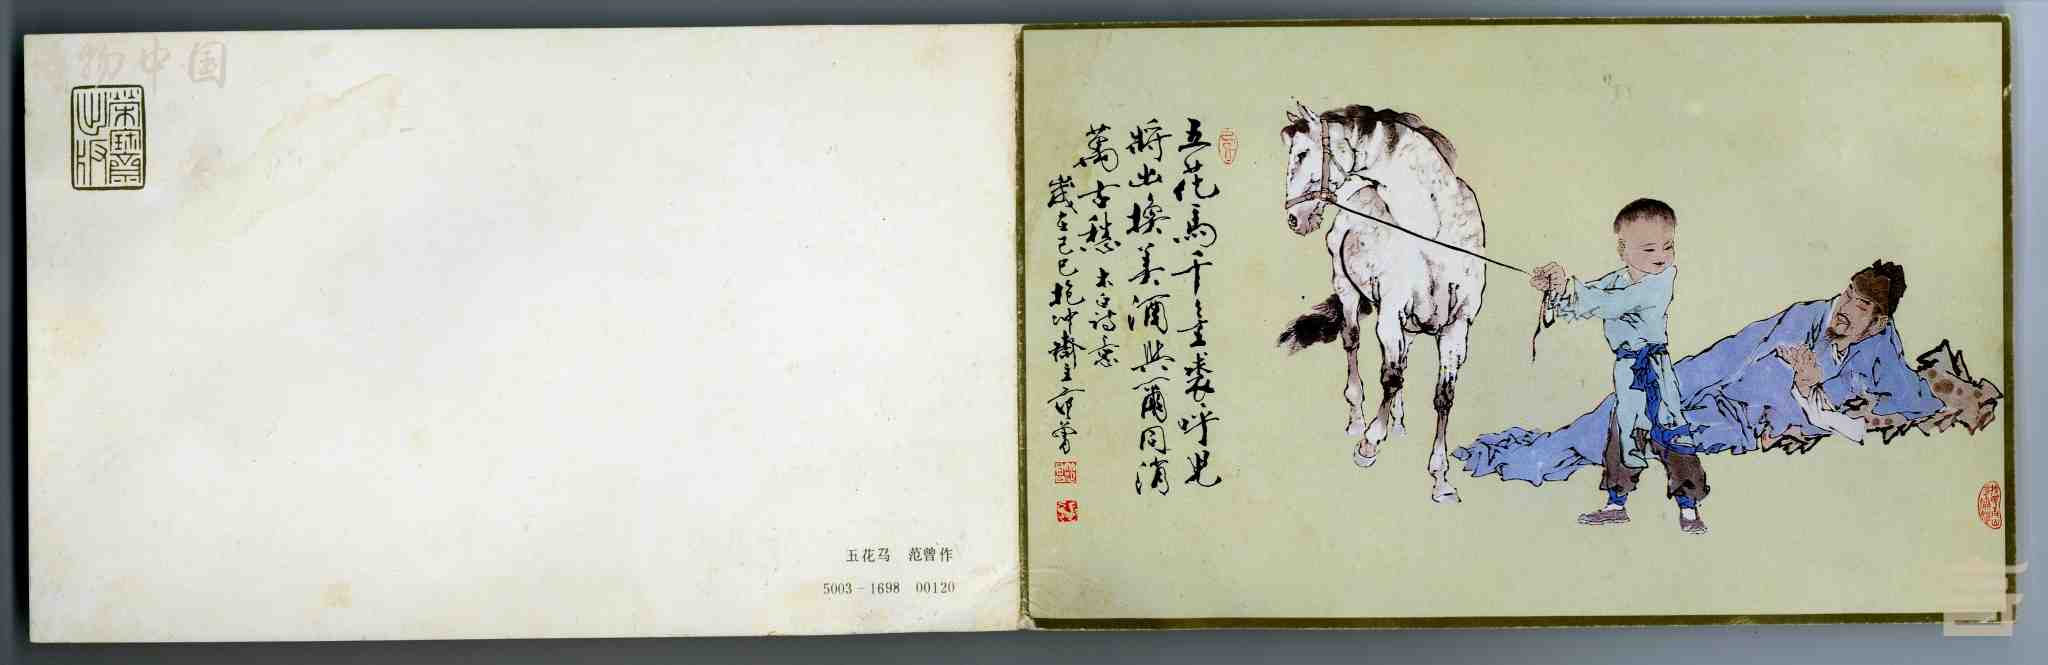 物中国
荣宝斋
出版
五花马 范曾作
5003-1698 00120
五花馬千金裘呼児
將出換美酒與爾同消
萬古愁 太白诗意
歲在己巳抱冲斋主范曾